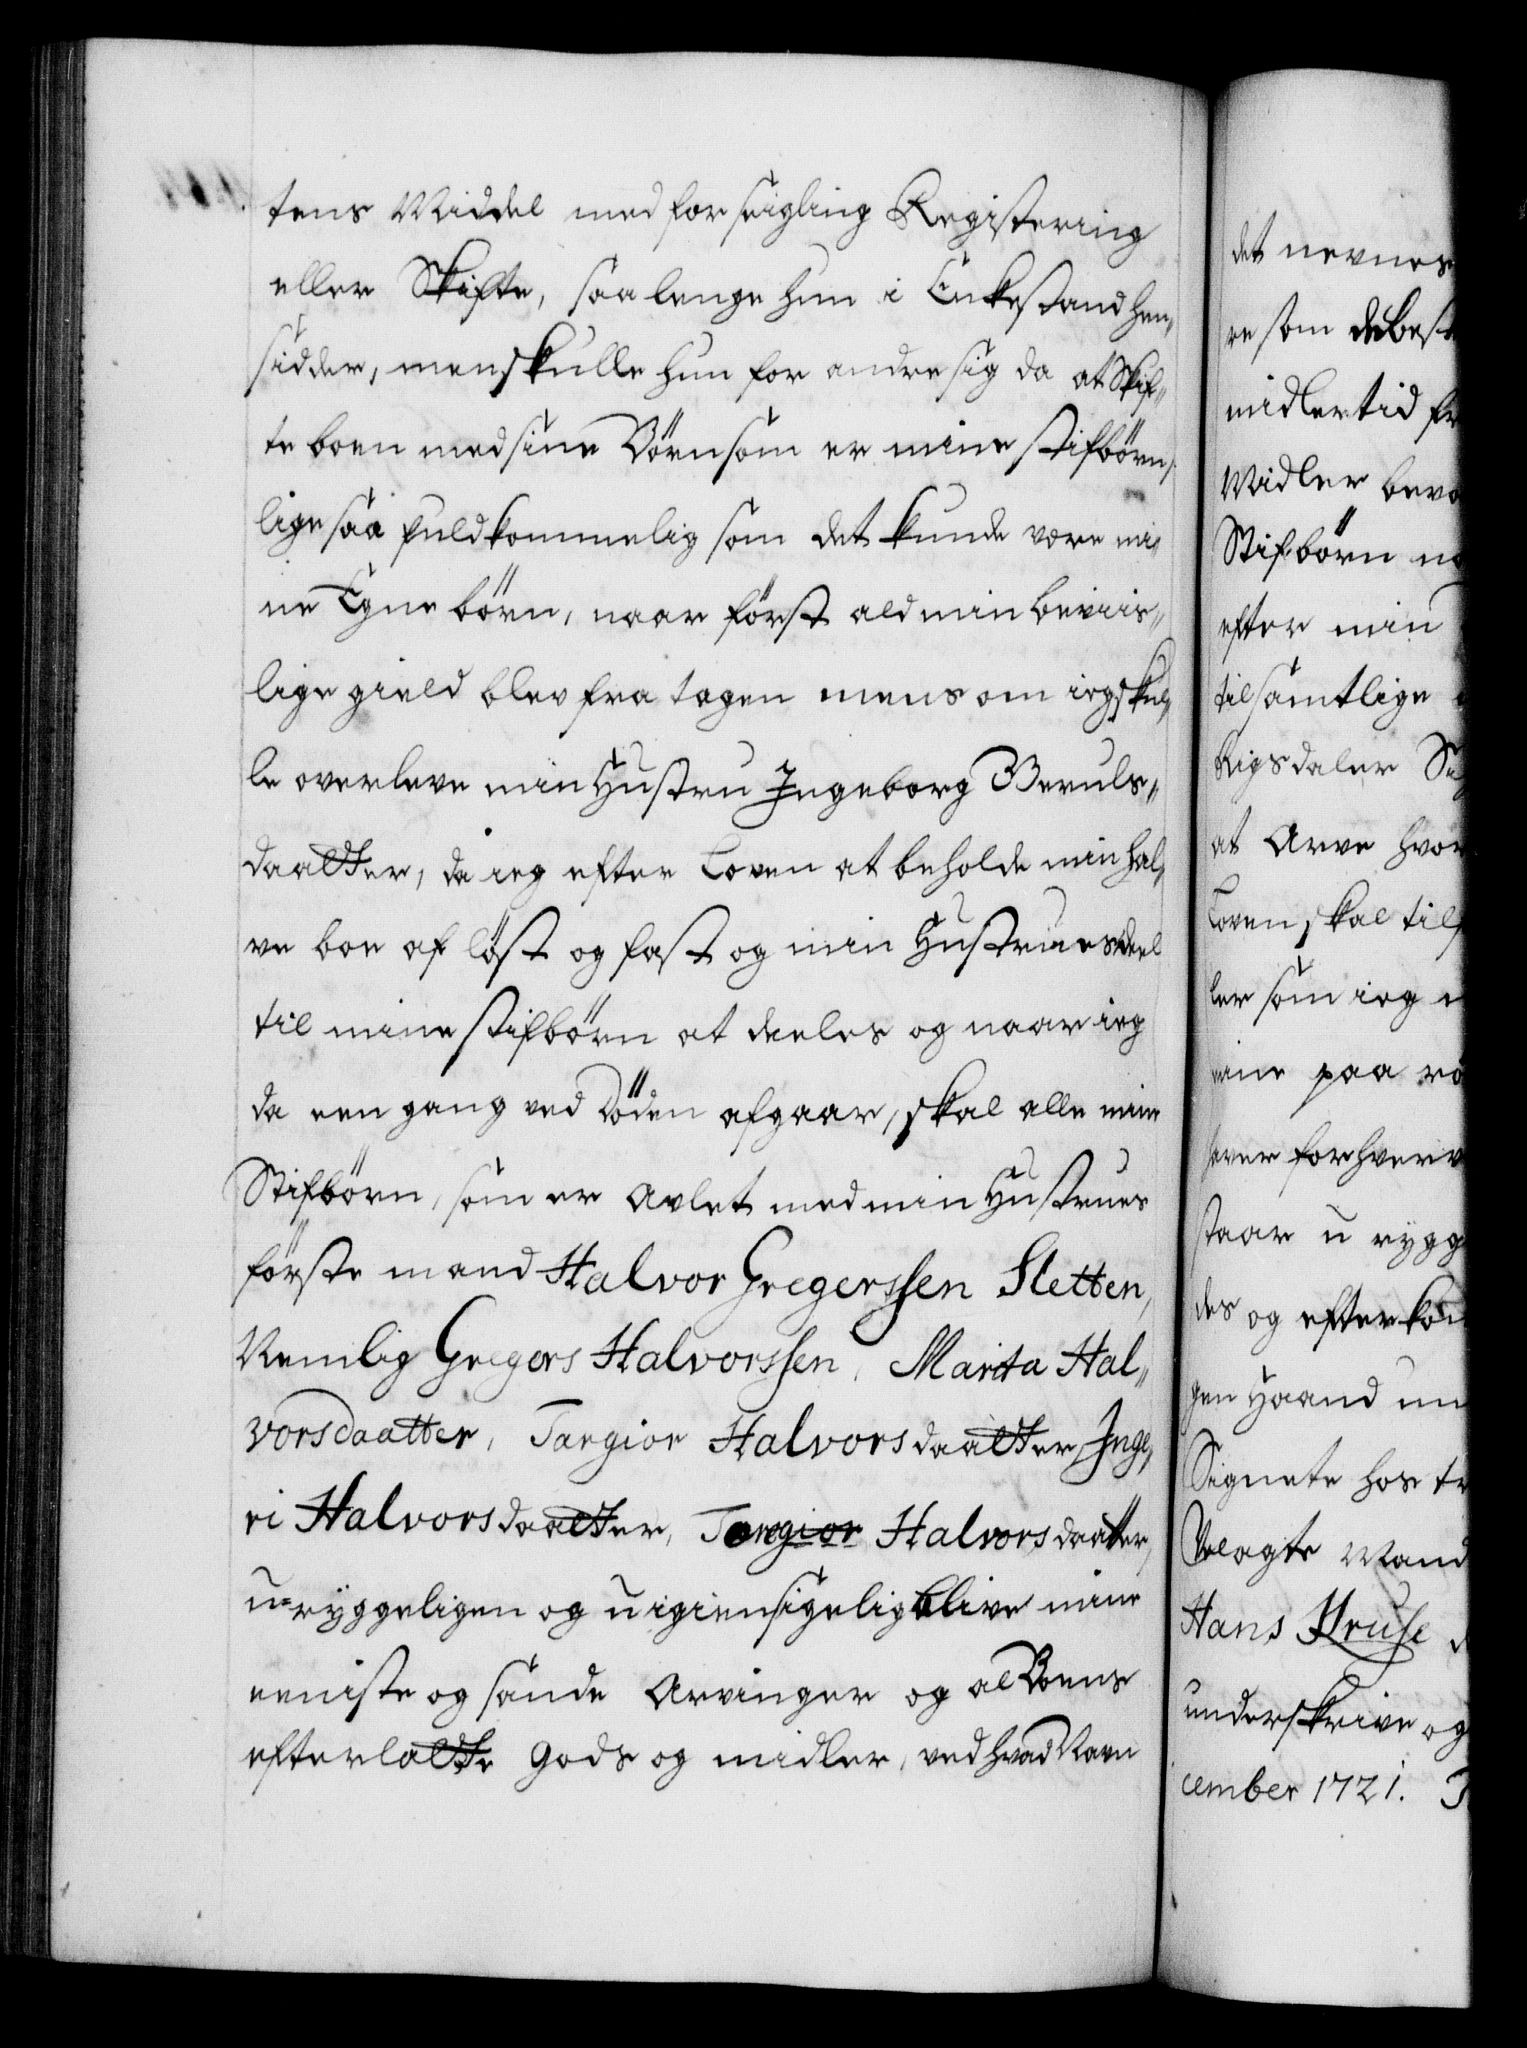 tens Middel med forseigling Registering
eller Skifte, saa lenge hun i Enkestand hen„
sidder, men skulle hun forandre sig da at Skif„
te boen med sine Børn som er mine stifbørn,
lige saa fuldkommelig som det kunde være mi„
ne Egne børn, naar först ald min beviis„
lige gield blev fra tagen mens om ieg skul„
le overleve min Hustru Ingeborg Beruls„
daatter, da ieg efter Loven at beholde min hal„
ve boe af löst og fast og min Hustrues deel
til mine stifbörn at deeles og naar ieg
da een gang ved Döden afgaar, skal alle mine
Stifbörn, som er Avlet med min Hustrues
förste mand Halvor Gregerssen Sletten,
Nemlig Gregers Halvorssen, Marita Hal„
vorsdaatter, Targior Halvorsdaatter, Inge„
ri Halvorsdaatter, Torgior Halvorsdaatter,
u-ryggeligen og uigiensigelig blive mine
eeniste og sande Arvinger og al Boens
efterladte Gods og midler, ved hvad Navn
det nevnes
re som de best
midlertid
Midler
Stifbörn
efter min
til samtlige
Rigsdaler
at Arve hvor
Loven skal
ler som ieg
mine paa
haver forhverv
staar u rygg
des og efterkom
gen Haand un
Signete hos
Velagte Mand
Hans Kruse
underskrive og
cember 1721.